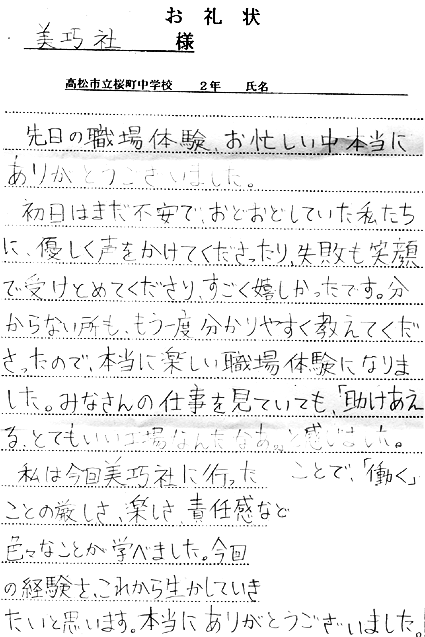 お礼状
美巧社 様
高松市立桜町中学校 2年 氏名
先日の職場体験、お忙しい中本当に
ありがとうございました。
初日はまだ不安で、おどおどしていた私たち
に、優しく声をかけてくださったり、失敗も笑顔
で受けとめてくださり、すごく嬉しかったです。分
からない所も、もう一度分かりやすく教えてくだ
さったので、本当に楽しい職場体験になりま
した。みなさんの仕事を見ていても、「助けあえ
る、とてもいい工場なんだなあ。」と感じました。
私は今回美巧社に行った ことで、「働く」
ことの厳しさ、楽しさ、責任感など
色々なことが学べました。今回
の経験を、これから生かしていき
たいと思います。本当にありがとうございました。